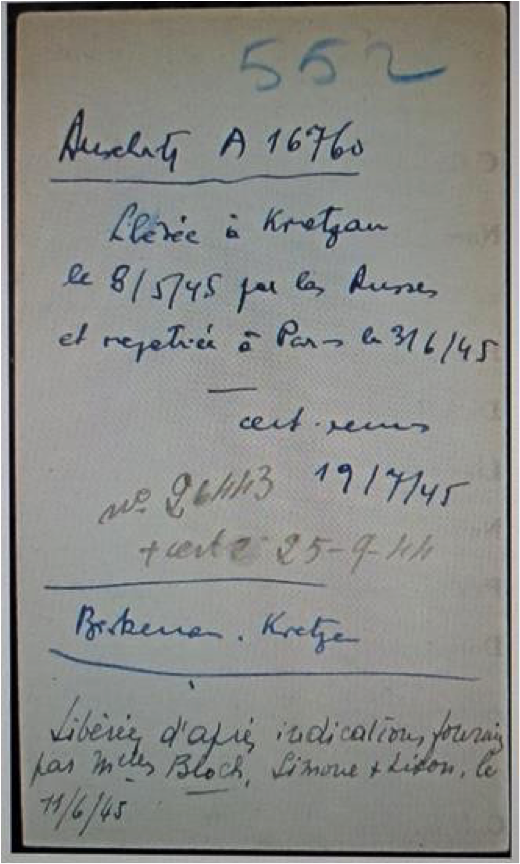 552
Auschwitz A 16760
Libérée à Kratzau
le 8/5/45 par les Russes
et rapatriée à Paris le 3/6/45
cert. remis
19/7/45
n° 26443
+ cert 25-9-44
Birkenau. Kratzau
Libérée d'après indications fournies
par Mlles Bloch, Simone + Lison, le
11/6/45